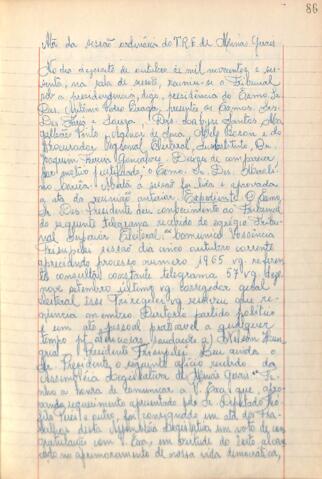 86
Ata da sessão ordinária do T.R.E. de Minas Gerais
No dia dezesete de outubro de mil novecentos e
na sala de sessões, reuniu-se o Tribunal
sob a presidencia, digo, presidência do Exmo. Sr.
Des. Antônio Pedro Braga, presentes os Exmos. Srs.
Des. Faria e Souza, Drs. Santos
Porto, de Lima, e do
Procurador Regional Eleitoral, Substituto, Dr.
Joaquim Ferreira Gonçalves. Deixou de comparecer
por motivo justificado, o Exmo. Sr. Des.
Aberta a sessão foi lida e aprovada
a ata da reunião anterior. Expediente: O Exmo.
Sr. Des. Presidente deu conhecimento ao Tribunal
do seguinte telegrama recebido do egrégio Tribu-
nal Superior Eleitoral: "Comunico Vossência
sessão dia cinco outubro corrente
apreciando processo numero 1965 vg referen
consulta constante telegrama 57 vg deze
nove setembro último vg corregedor geral
eleitoral esse Triregelei vg resolveu que re-
núncia membro Diretorio partido politico
é um ato pessoal praticavel a qualquer
tempo pt atenciosas saudações a) Nelson Hun-
gria Presidente Leu ainda o
Sr. Presidente o seguinte ofício recebido da
Assembléia Legislativa de Minas Gerais: "Te-
nho a honra de comunicar a V. Exa. que, apro-
vando requerimento apresentado pelo Sr. Deputado
e outros, foi consignado em ata dos tra-
balhos desta Assembléia Legislativa um voto de con-
gratulações com V. Exa., em virtude do exito alcan-
çado no aprimoramento de nossa vida democrática,